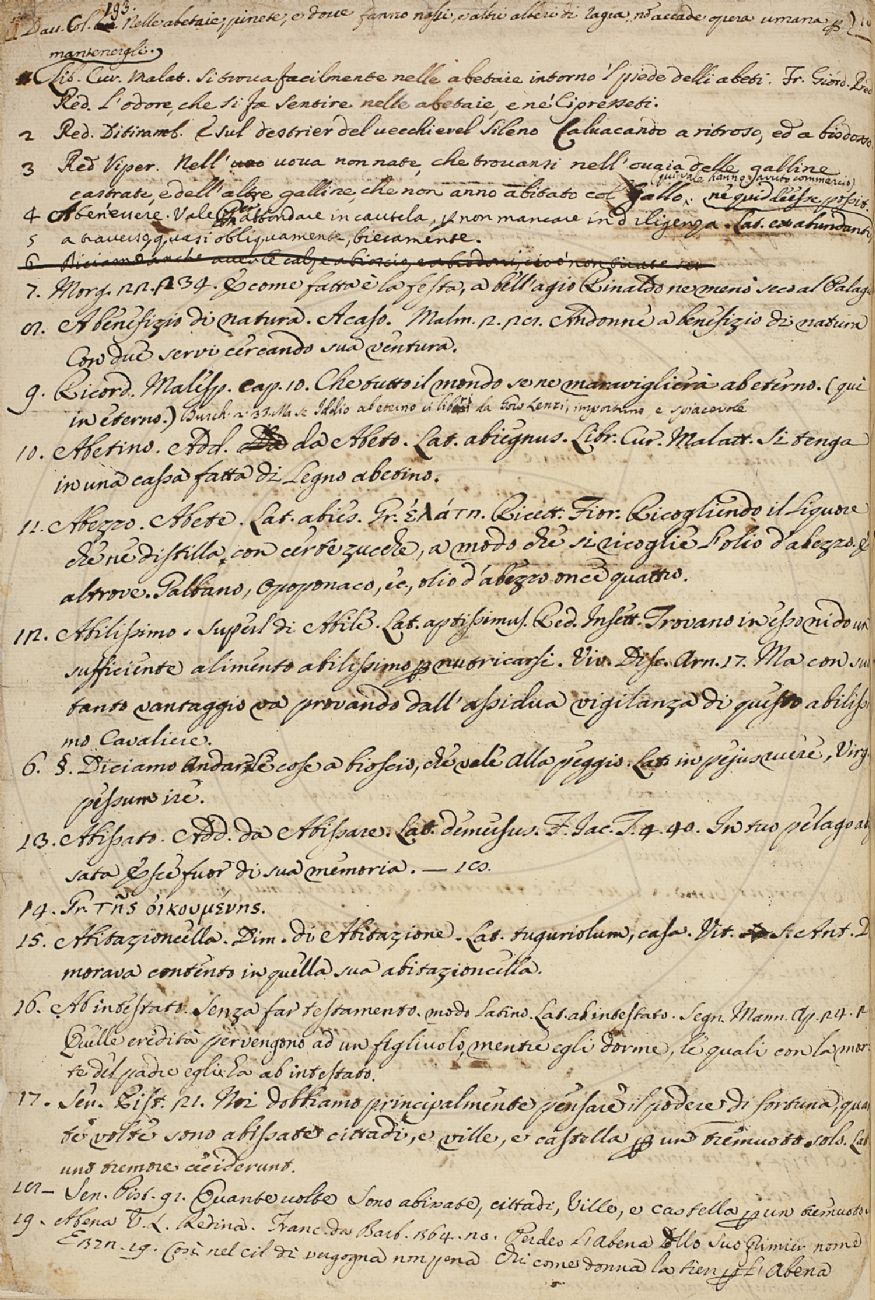 Dav. Col. 193. Nelle abetaie, pinete, e dove fanno nasi, e altri alberi di ragia, nō accade opera umana p
mantenergli.
Lib. Cur. Malat. Si trova facilmente nelle abetaie intorno 'l piede delli abeti. Fr. Giord. Pred
Red. L'odore, che si fa sentire nelle abetaie e ne' Cipresseti.
2 Red. Ditiramb. E sul destrier del vecchierel Sileno Cavalcando a ritroso, ed a bisdosso
3 Red Viper. Nell' uova non nate, che trovansi nell' ovaia delle galline
qui vale hanno avuto commercio
castrate, e dell' altre galline, che non anno abitato col Gallo.
4 Abenessere. Vale abbondare in cautela, p non mancare in diligenza. Lat. ex abundanti,
5 a traverso, quasi obliquamente, biecamente.
7. Morg. 22. 234. E come fatta è la festa, a bell'agio Rinaldo ne menò seco al Palag
8. A benefizio di natura. A caso. Malm. 2. 28. Andonne a benefizio di natura
Con due servi cercando sua ventura.
9. Ricord. Malesp. cap. 10. Che tutto il mondo se ne maraviglierà ab eterno. (qui
in eterno.) Burch. 2. 33. Ma se Iddio ab eterno ti liberi da Gois Lenzi, importuno, e spiacevole
10. Abetino. Add. da Abeto. Lat. abiegnus. Libr. Cur. Malatt. Si tenga
in una cassa fatta di Legno abetino.
11. Abezzo. Abete. Lat. abies. Gr. ἐλάτη. Ricett. Fior. Ricogliendo il Liquore
che ne distilla, con certe zucche, a modo che si ricoglie l'olio d'abezzo. E
altrove. Galbano, Opoponaco, ec, olio d'abezzo once quattro.
12. Abilissimo. Superl di Abile. Lat. aptissimus. Red. Insett. Trovano in esso nido un
sufficiente alimento abilissimo p nutricarsi. Viv. Disc. Arn. 17. Ma con suo
tanto vantaggio va provando dall' assidua vigilanza di questo abiliss
mo Cavaliere.
6. §. Diciamo Andar le cose a bioscio, che vale alla peggio. Lat. in pejus ruere, Virg.
pessum ire.
13. Abissato. Add. da Abissare. Lat. demersus. F. Jac. T. 4. 40. In tuo pelago abis
sata Esce fuor di sua memoria. — 18.
14. Gr. τῆς οἰκουμένης.
15. Abitazioncella. Dim. di Abitazione. Lat. tuguriolum, casa. Vit. S. Ant. D
morava contento in quella sua abitazioncella.
16. Ab intestato. Senza far testamento. modo Latino. Lat. ab intestato. Segn. Mann. Ap. 24. 2
Quelle eredità pervengono ad un figliuolo, mentre egli dorme, le quali con la mor
te del padre egli ha ab intestato.
17. Sen. Pist. 91. Noi dobbiamo principalmente pensare il podere di fortuna, quan
te volte sono abissate cittadi, e ville, e castella p un tremuoto solo. Lat
uno tremore ceciderunt.
18 — Sen. Pist. 91. Quante volte sono abissate, cittadi, Ville, e castella p un tremuoto
19. Abena V. L. Redina. Franc. da Barb. 364. 20. Perdeo L'abena Dello suo primier nome
E 321. 19. Così nel cil di vergogna non pena Chi come donna la tien p L'abena